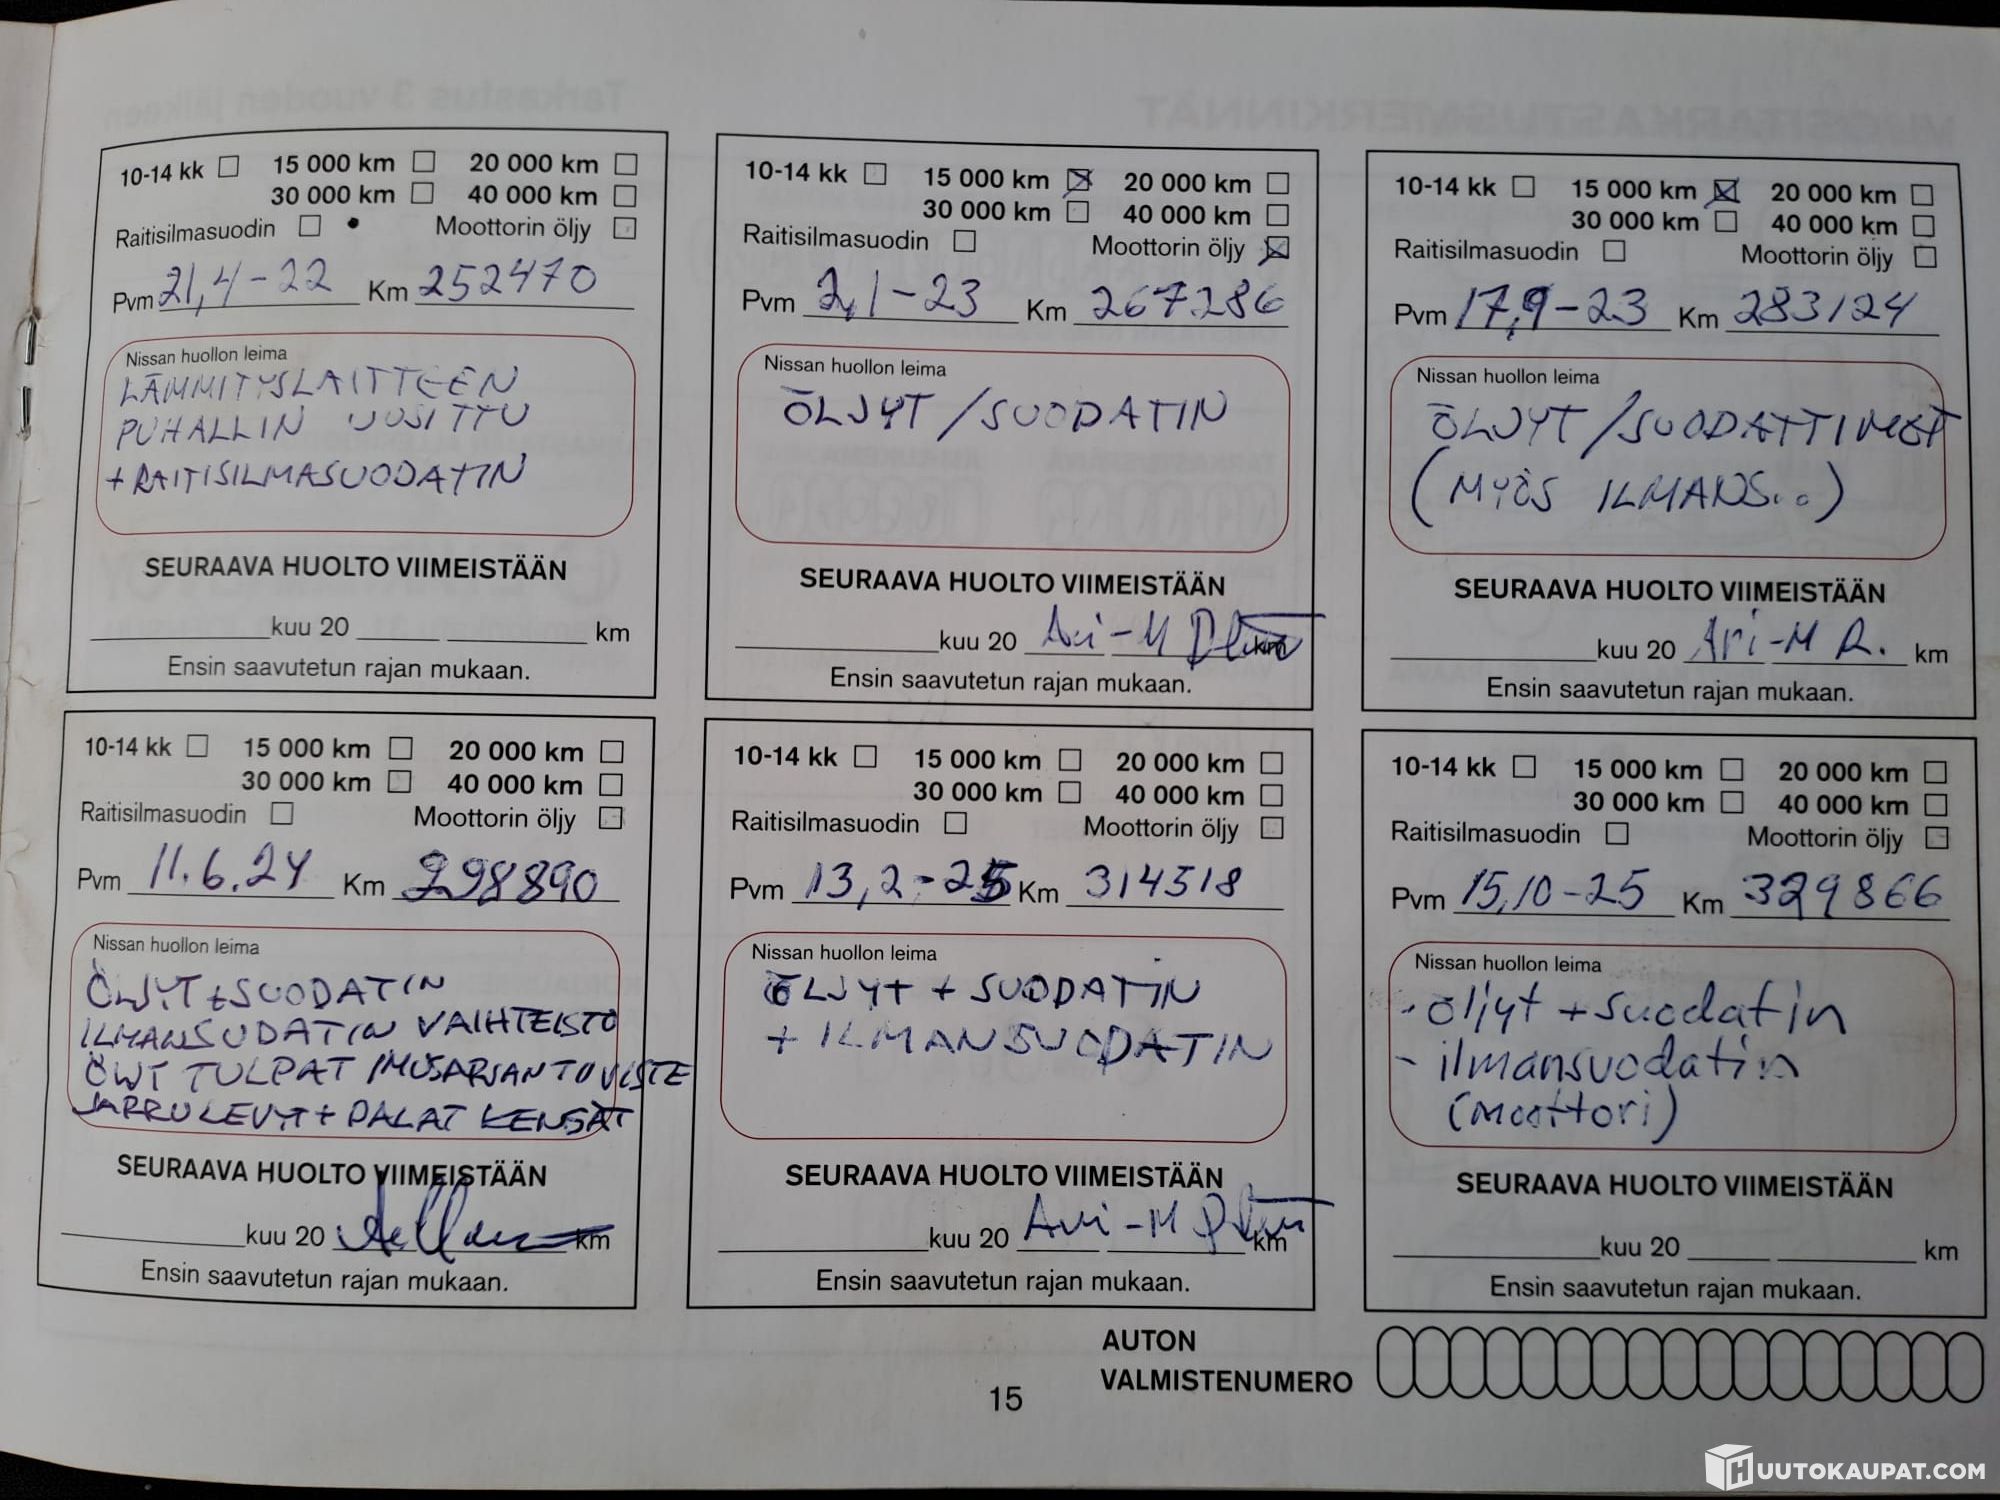 10-14 kk 15 000 km 20 000 km
30 000 km 40 000 km
Raitisilmasuodin Moottorin öljy
Pvm 21,4-22 Km 252470
Nissan huollon leima
LÄMMITYSLAITTEEN
PUHALLIN UUSITTU
+RAITISILMASUODATIN
SEURAAVA HUOLTO VIIMEISTÄÄN
kuu 20 km
Ensin saavutetun rajan mukaan.
10-14 kk 15 000 km 20 000 km
30 000 km 40 000 km
Raitisilmasuodin Moottorin öljy
Pvm 2,1-23 Km 267286
Nissan huollon leima
ÖLJYT/SUODATIN
SEURAAVA HUOLTO VIIMEISTÄÄN
kuu 20 Ari-M km
Ensin saavutetun rajan mukaan.
10-14 kk 15 000 km 20 000 km
30 000 km 40 000 km
Raitisilmasuodin Moottorin öljy
Pvm 17,9-23 Km 283124
Nissan huollon leima
ÖLJYT/SUODATTIMET
(MYÖS ILMANS...)
SEURAAVA HUOLTO VIIMEISTÄÄN
kuu 20 Ari-M R. km
Ensin saavutetun rajan mukaan.
10-14 kk 15 000 km 20 000 km
30 000 km 40 000 km
Raitisilmasuodin Moottorin öljy
Pvm 11.6.24 Km 298890
Nissan huollon leima
ÖLJYT+SUODATIN
ILMANSUDATIN VAIHTEISTO
ÖLJYT TULPAT IMUSARJAN TIIVISTE
JARRULEVYT+PALAT
SEURAAVA HUOLTO VIIMEISTÄÄN
kuu 20 km
Ensin saavutetun rajan mukaan.
10-14 kk 15 000 km 20 000 km
30 000 km 40 000 km
Raitisilmasuodin Moottorin öljy
Pvm 13,2-25 Km 314518
Nissan huollon leima
ÖLJYT + SUODATIN
+ ILMANSUODATIN
SEURAAVA HUOLTO VIIMEISTÄÄN
kuu 20 Ari-M km
Ensin saavutetun rajan mukaan.
10-14 kk 15 000 km 20 000 km
30 000 km 40 000 km
Raitisilmasuodin Moottorin öljy
Pvm 15,10-25 Km 329866
Nissan huollon leima
- öljyt + suodatin
- ilmansuodatin
(moottori)
SEURAAVA HUOLTO VIIMEISTÄÄN
kuu 20 km
Ensin saavutetun rajan mukaan.
AUTON
VALMISTENUMERO
15
HUUTOKAUPAT.COM